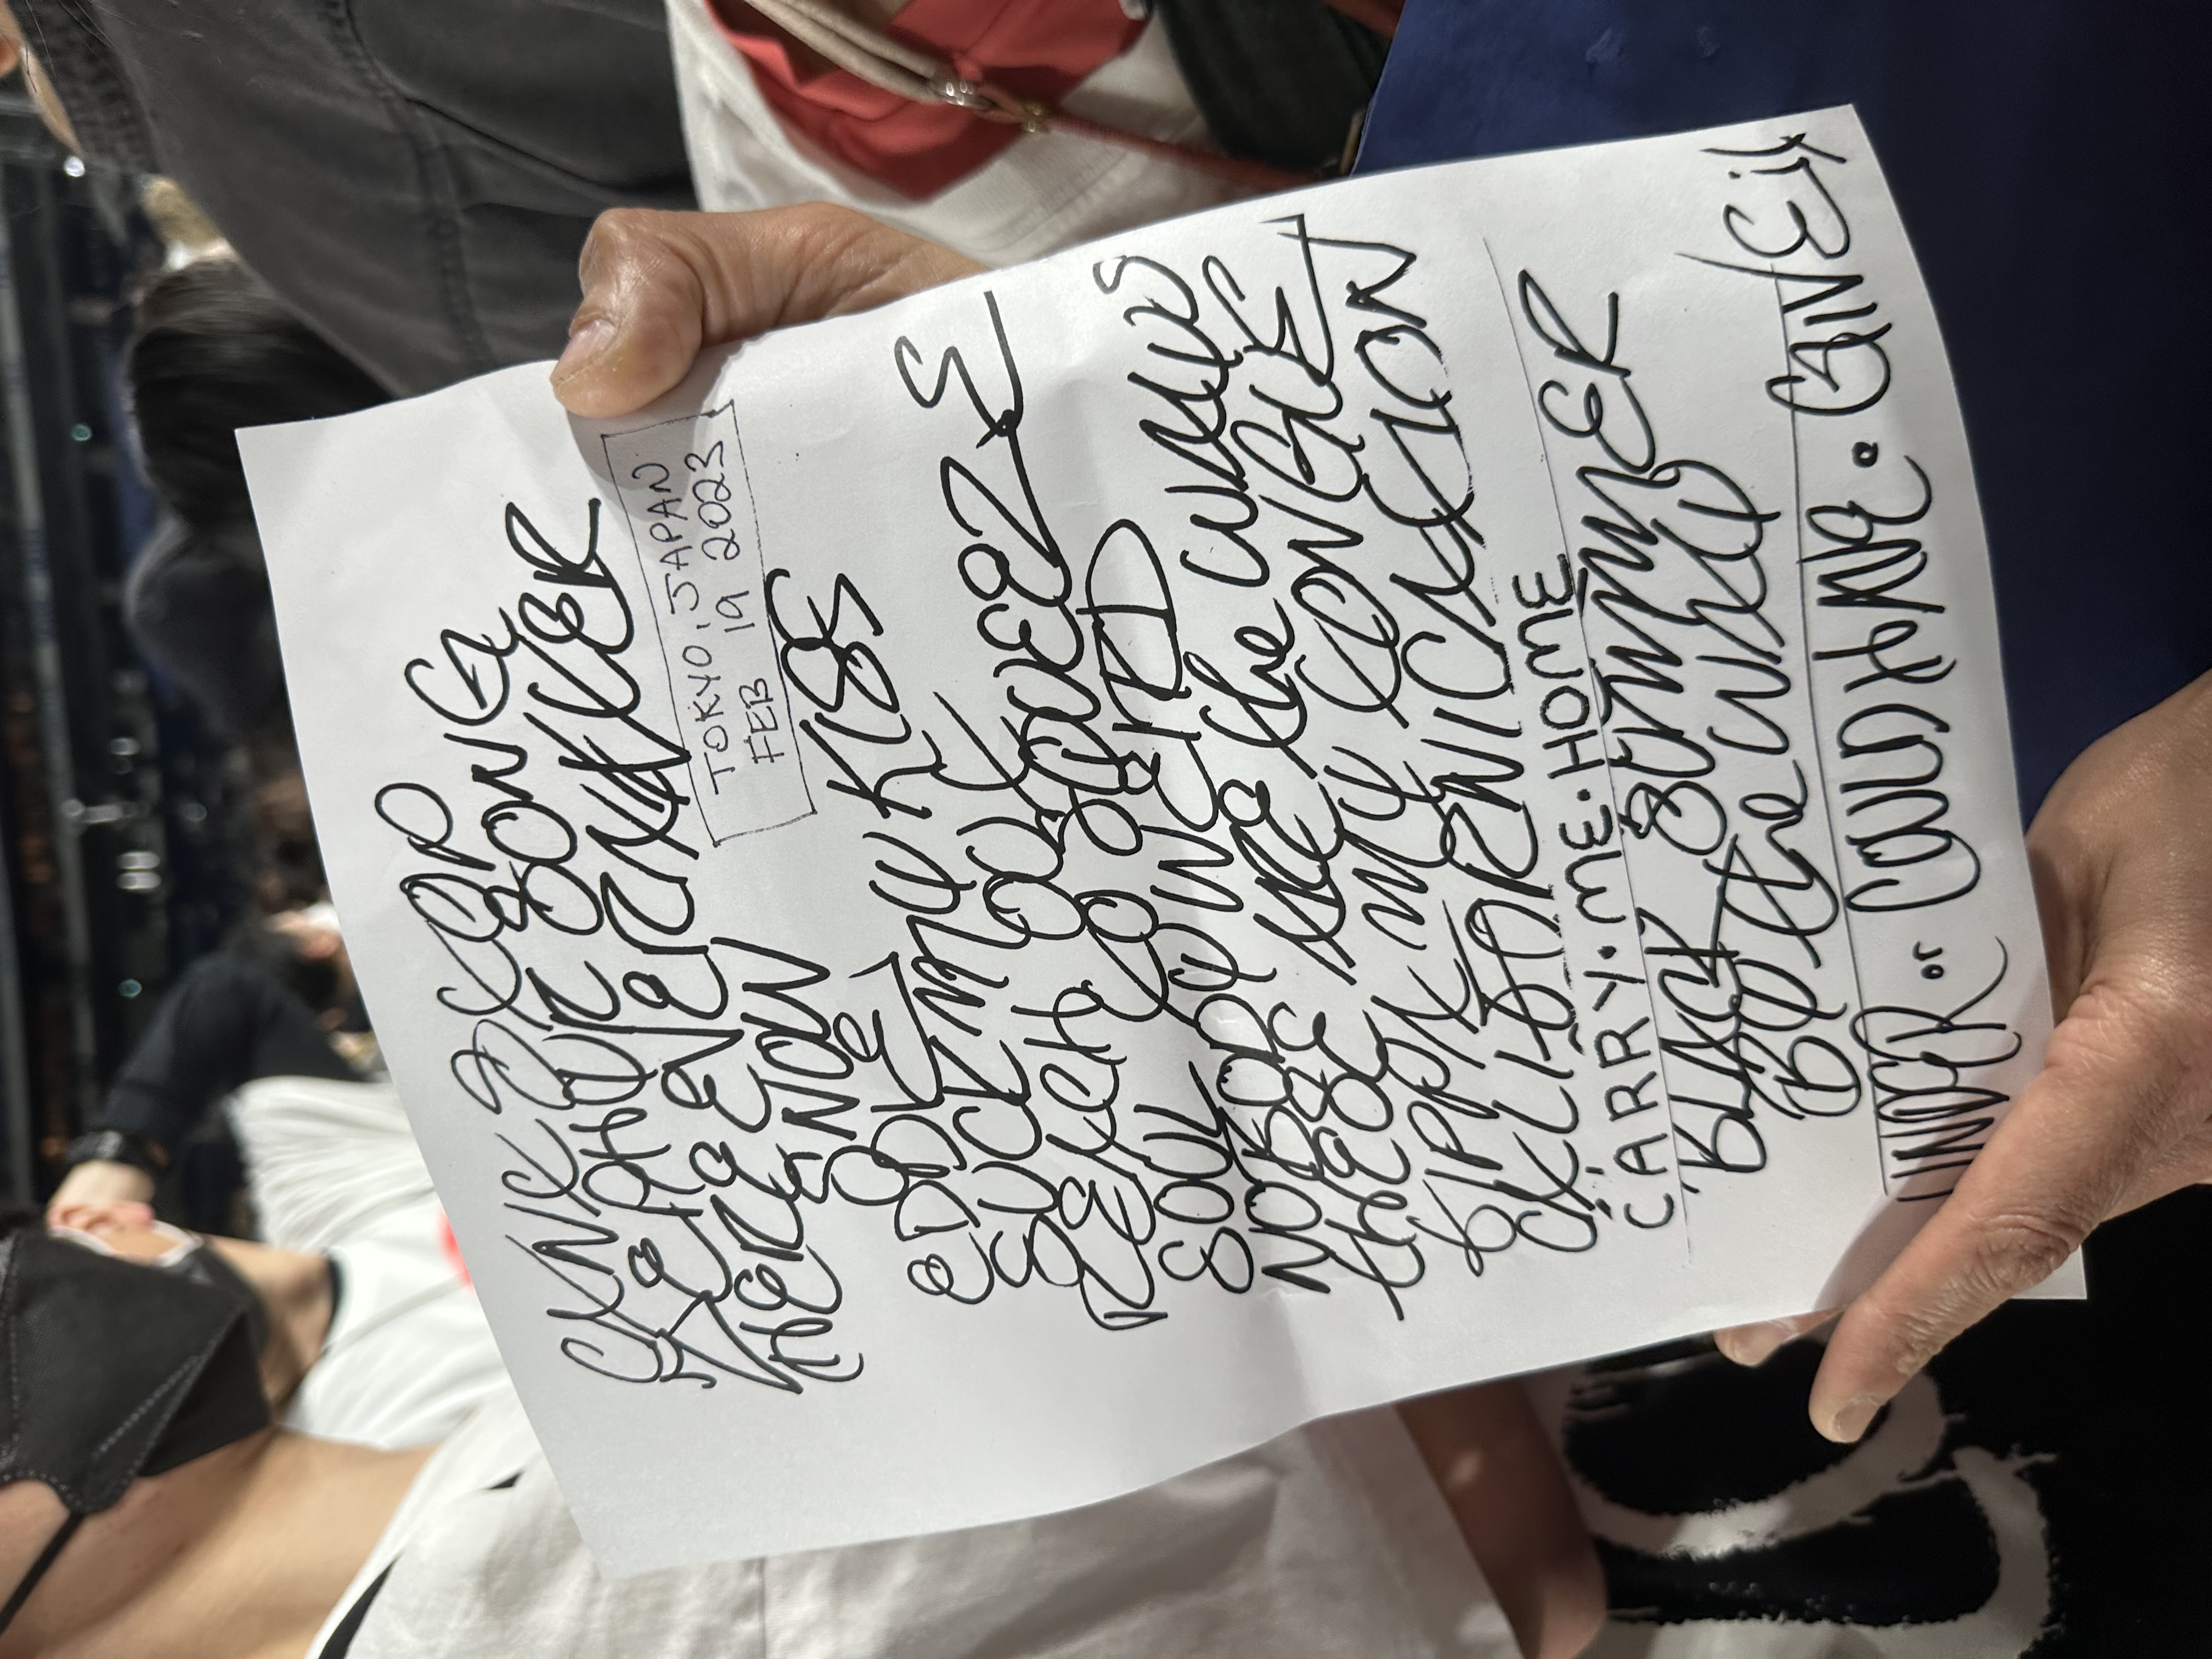 CANT STOP
ZEPHYR SONG
HERE EVER AFTER
SNOW
TOKYO, JAPAN
FEB 19 2023
EDDIE
SUCK MY KISS
REACH OUT
SOUL TO SQUEEZE
NOBODY WEIRD
THESE ARE the WAYS
TIPPA MY TONGUE
CALIFORNICATION
CARRY·ME·HOME
BLACK SUMMER
BY the WAY
UNDER or COULD HAVE · GIVE it